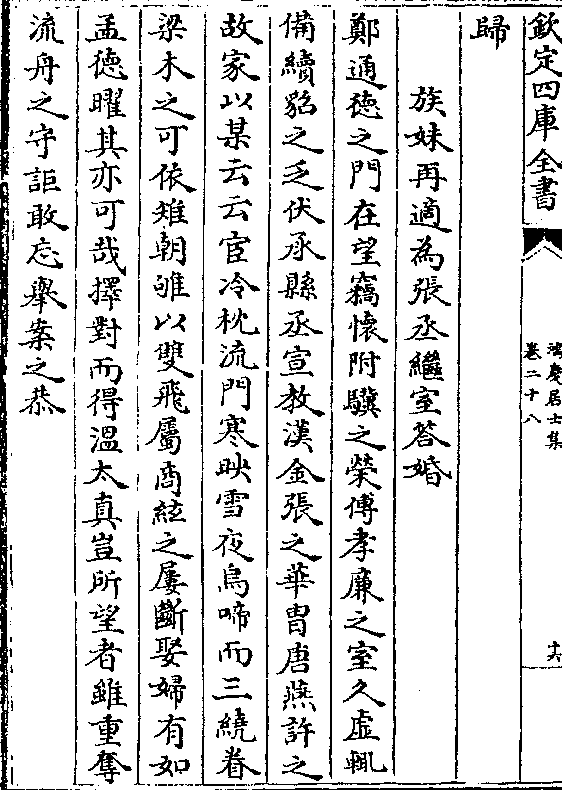 欽定四庫全書
鴻慶居士集
卷二十八
十六
歸
族妹再適為張丞繼室荅婚
鄭通徳之門在望竊懷附驥之榮傅孝廉之室久虛輒
備續貂之乏伏承縣丞宣教漢金張之華胄唐燕許之
故家以某云云宦冷枕流門寒映雪夜烏啼而三繞眷
梁木之可依雉朝雊以雙飛屬商絃之屢斷娶婦有如
孟徳曜其亦可哉擇對而得溫太真豈所望者雖重奪
流舟之守詎敢忘舉案之恭